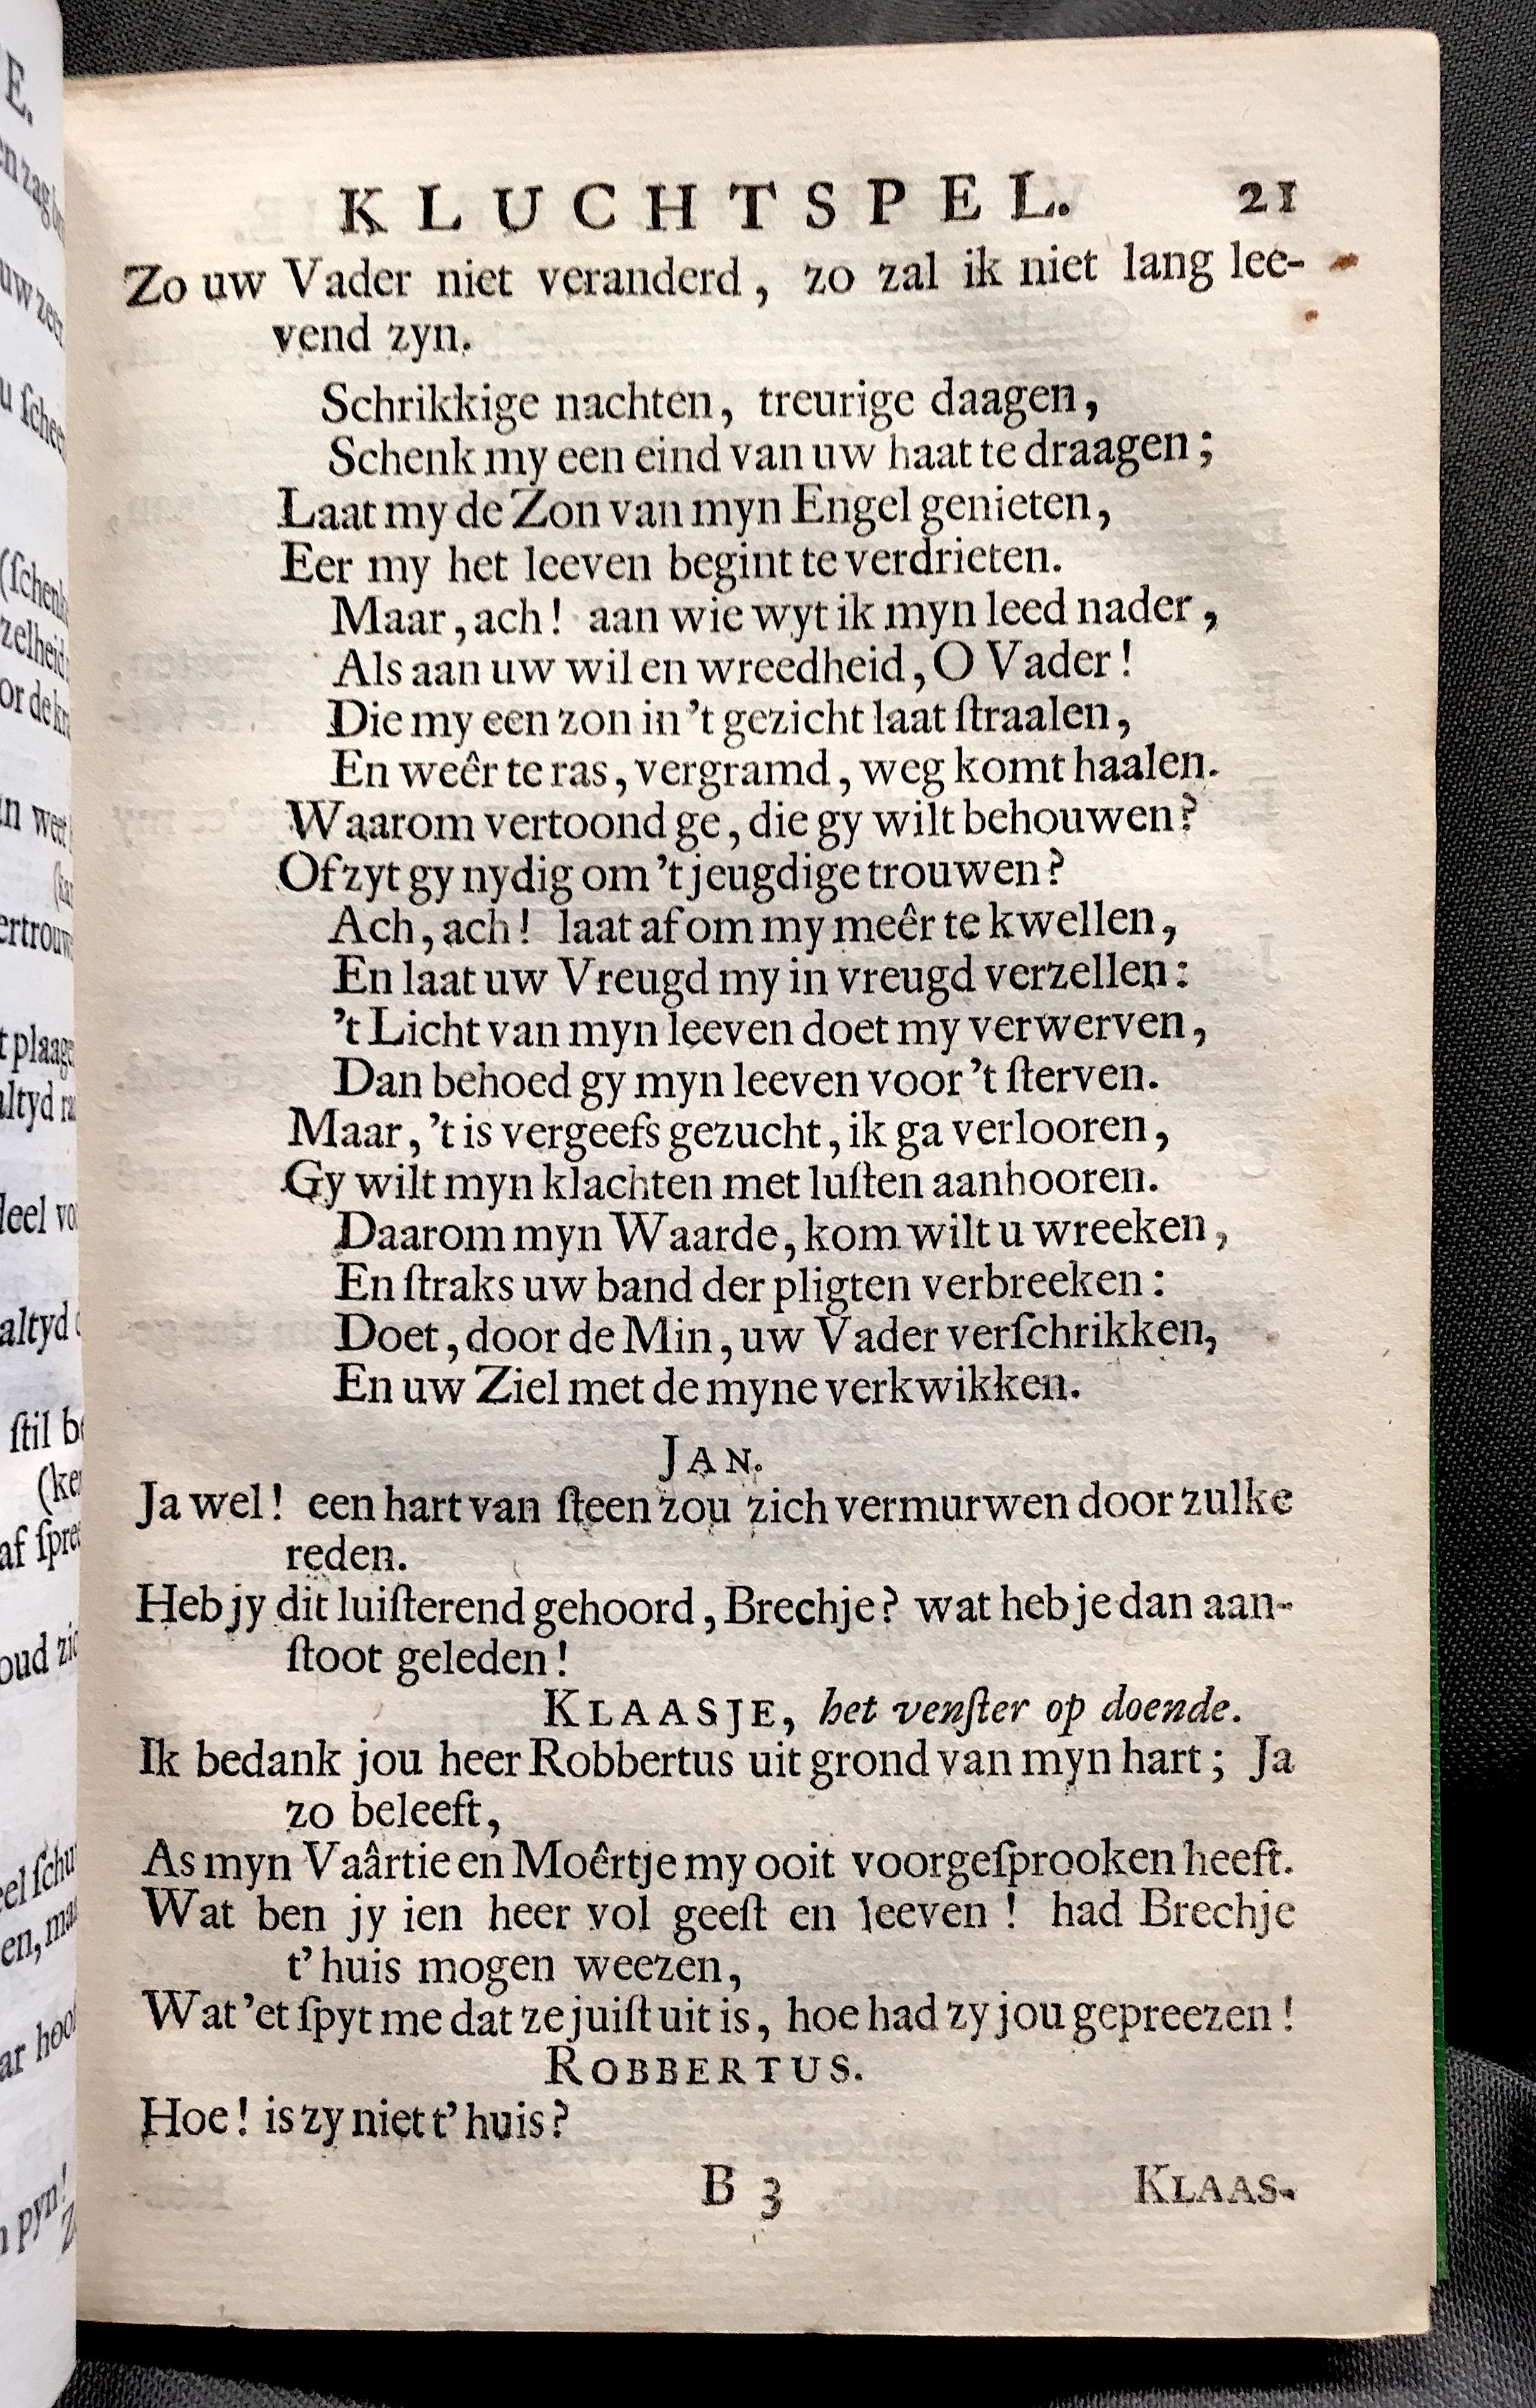 KLUCHTSPEL. 21
Zo uw Vader niet veranderd, zo zal ik niet lang lee-
vend zyn.
Schrikkige nachten, treurige daagen,
Schenk my een eind van uw haat te draagen;
Laat my de Zon van myn Engel genieten,
Eer my het leeven begint te verdrieten.
Maar, ach! aan wie wyt ik myn leed nader,
Als aan uw wil en wreedheid, O Vader!
Die my een zon in 't gezicht laat ſtraalen,
En weêr te ras, vergramd, weg komt haalen.
Waarom vertoond ge, die gy wilt behouwen?
Of zyt gy nydig om 't jeugdige trouwen?
Ach, ach! laat af om my meêr te kwellen,
En laat uw Vreugd my in vreugd verzellen:
't Licht van myn leeven doet my verwerven,
Dan behoed gy myn leeven voor 't ſterven.
Maar, 't is vergeefs gezucht, ik ga verlooren,
Gy wilt myn klachten met luſten aanhooren.
Daarom myn Waarde, kom wilt u wreeken,
En ſtraks uw band der pligten verbreeken:
Doet, door de Min, uw Vader verſchrikken,
En uw Ziel met de myne verkwikken.
JAN.
Ja wel! een hart van ſteen zou zich vermurwen door zulke
reden.
Heb jy dit luiſterend gehoord, Brechje? wat heb je dan aan-
ſtoot geleden!
KLAASJE, het venſter op doende.
Ik bedank jou heer Robbertus uit grond van myn hart; Ja
zo beleeft,
As myn Vaârtie en Moêrtje my ooit voorgeſprooken heeft.
Wat ben jy ien heer vol geeſt en leeven! had Brechje
t' huis mogen weezen,
Wat 'et ſpyt me dat ze juiſt uit is, hoe had zy jou gepreezen!
ROBBERTUS.
Hoe! is zy niet t' huis?
B 3 KLAAS-